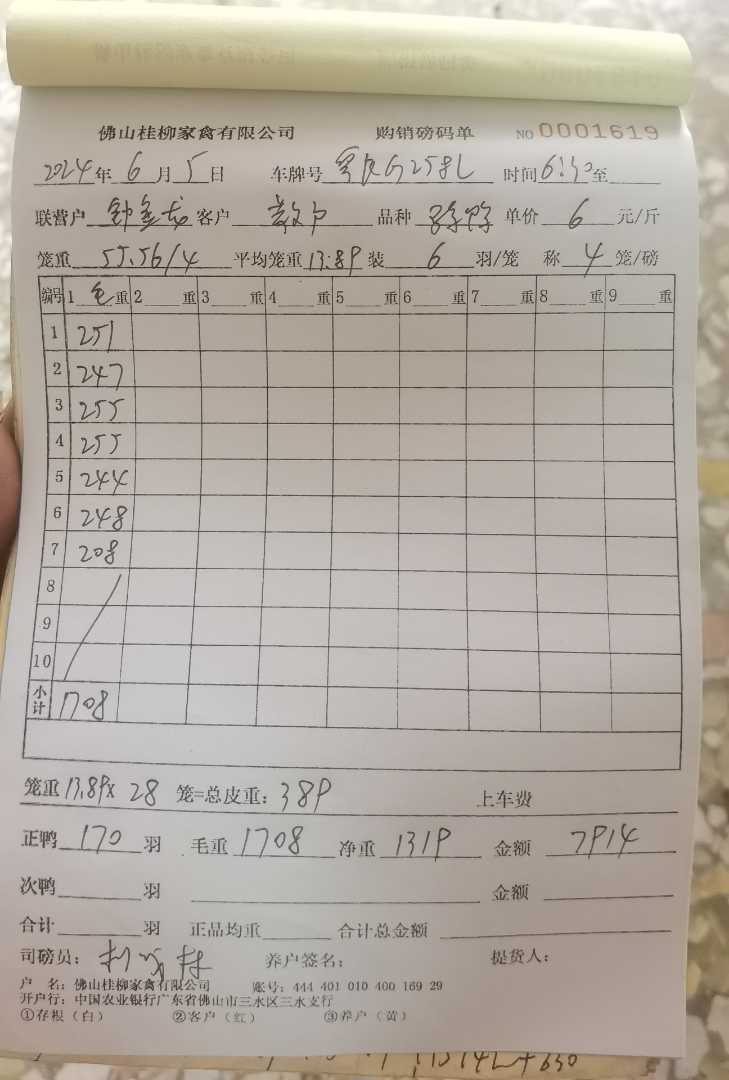 佛山桂柳家禽有限公司 购销磅码单 NO 0001619
2024年6月5日 车牌号 G258L 时间6:30至
联营户 钟金龙 客户 散户 品种 单价 6 元/斤
笼重 55.56/4 平均笼重 13.89 装 6 羽/笼 称 4 笼/磅
编号 1 毛重 2 重 3 重 4 重 5 重 6 重 7 重 8 重 9 重
1 251
2 247
3 255
4 255
5 244
6 248
7 208
8
9
10
小计 1708
笼重 13.89× 28 笼=总皮重: 389 上车费
正鸭 170 羽 毛重 1708 净重 1319 金额 7914
次鸭 羽 金额
合计 羽 正品均重 合计总金额
司磅员: 养户签名: 提货人:
户 名: 佛山桂柳家禽有限公司 账号: 444 401 010 400 169 29
开户行: 中国农业银行广东省佛山市三水区三水支行
①存根(白) ②客户(红) ③养户(黄)